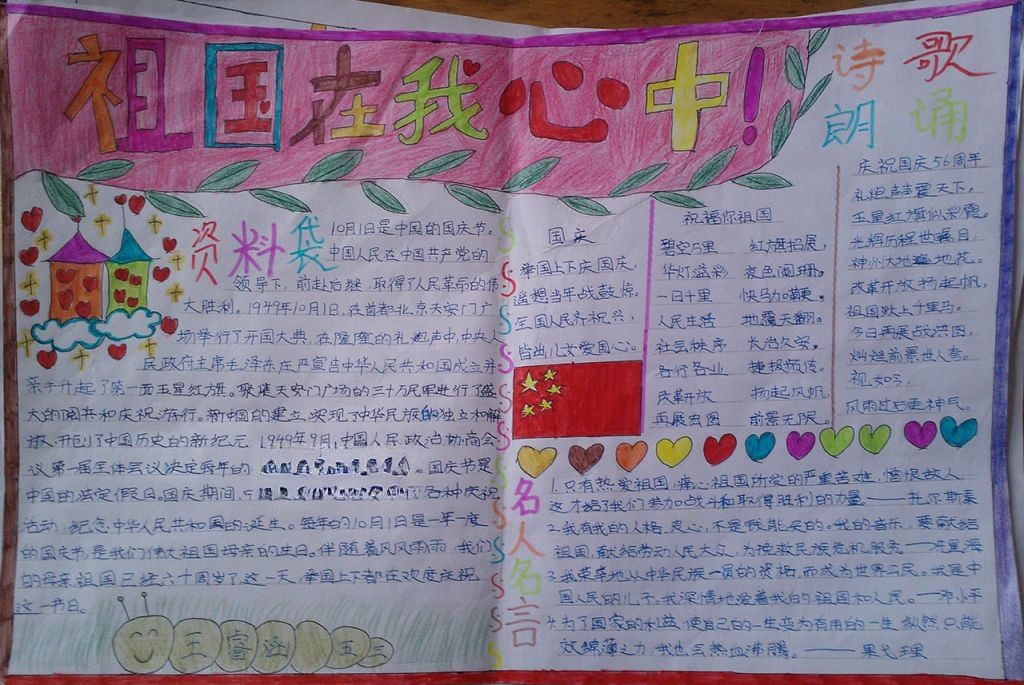 祖国在我心中!
诗歌
朗诵
资料袋
10月1日是中国的国庆节。
中国人民在中国共产党的
领导下,前赴后继,取得了人民革命的伟
大胜利。1949年10月1日,在首都北京天安门广
场举行了开国大典,在隆隆的礼炮声中,中央人
民政府主席毛泽东庄严宣告中华人民共和国成立并
亲手升起了第一面五星红旗。聚集天安门广场的三十万民军进行了盛
大的阅兵和庆祝游行。新中国的建立,实现了中华民族的独立和解
放,开创了中国历史的新纪元 1949年9月,中国人民政治协商会
议第一届全体会议决定每年的 。国庆节是
中国的法定假日。国庆期间, 各种庆祝
活动,纪念中华人民共和国的诞生。每年的10月1日是一年一度
的国庆节,是我们伟大祖国母亲的生日。伴随着风风雨雨,我们
的母亲祖国已经六十周岁了,这一天,举国上下都在欢度庆祝
这一节日。
王睿 五三
国庆
举国上下庆国庆,
遥想当年战鼓惊。
全国人民齐祝兴,
皆出儿女爱国心。
祝福你祖国
碧空万里 红旗招展,
华灯溢彩 夜色阑珊。
一日千里 快马加鞭。
人民生活 地覆天翻。
社会秩序 长治久安。
各行各业 捷报频传。
改革开放 扬起风帆
再展宏图 前景无限。
庆祝国庆56周年
礼炮声声震天下,
五星红旗似彩霞。
光辉历程世瞩目,
神州大地遍地花。
改革开放扬起帆,
祖国跃上千里马。
今日再展战洪图,
灿烂前景世人夸。
视如今,
风雨过后更神气。
名人名言
1.只有热爱祖国,痛心祖国所受的严重苦难,憎恨敌人
这才给了我们参加战斗和取得胜利的力量——托尔斯泰
2.我有我的人格、良心,不是钱能买的。我的音乐,要献给
祖国,献给劳动人民大众,为挽救民族危机服务——冼星海
3.我荣幸地从中华民族一员的资格,而成为世界公民。我是中
国人民的儿子。我深情地爱着我的祖国和人民。——邓小平
4.为了国家的利益,使自己的一生变为有用的一生,纵然只能
效绵薄之力,我也会热血沸腾。——果戈理